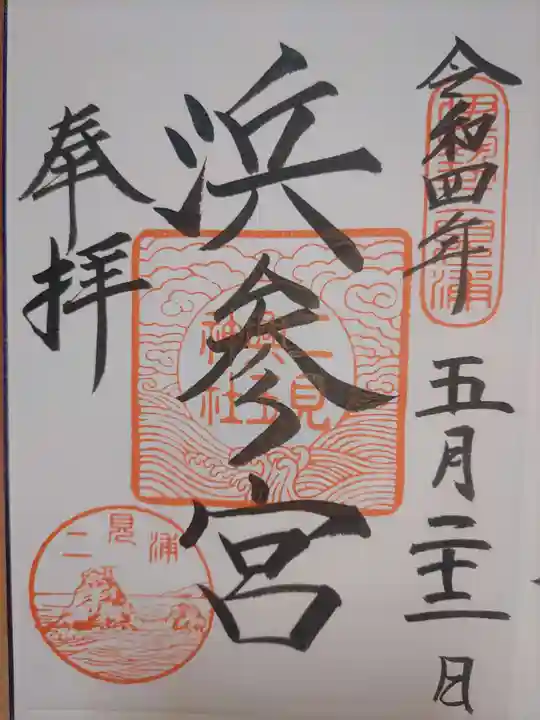 令和四年五月二十二日
浜参宮
奉拝
二見
興玉
神社
二見浦